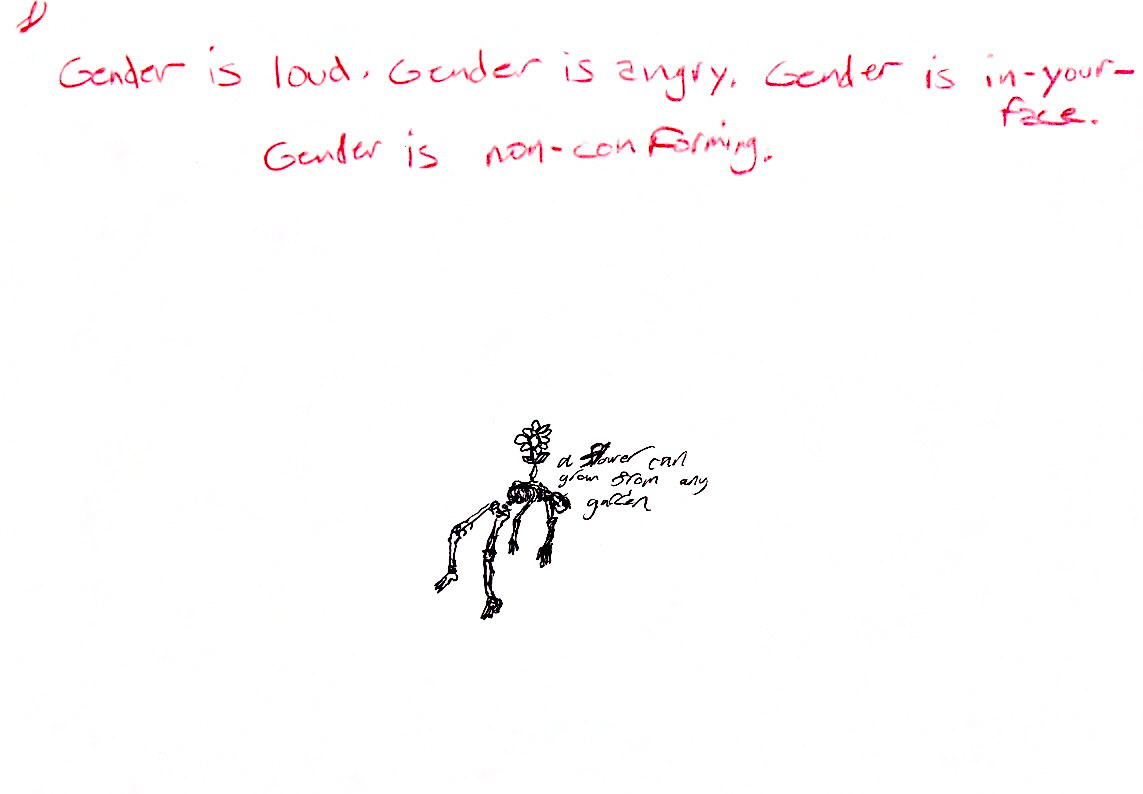 Gender is loud. Gender is angry. Gender is in-your-
face.
Gender is non-conforming.
a flower can
grow from any
garden